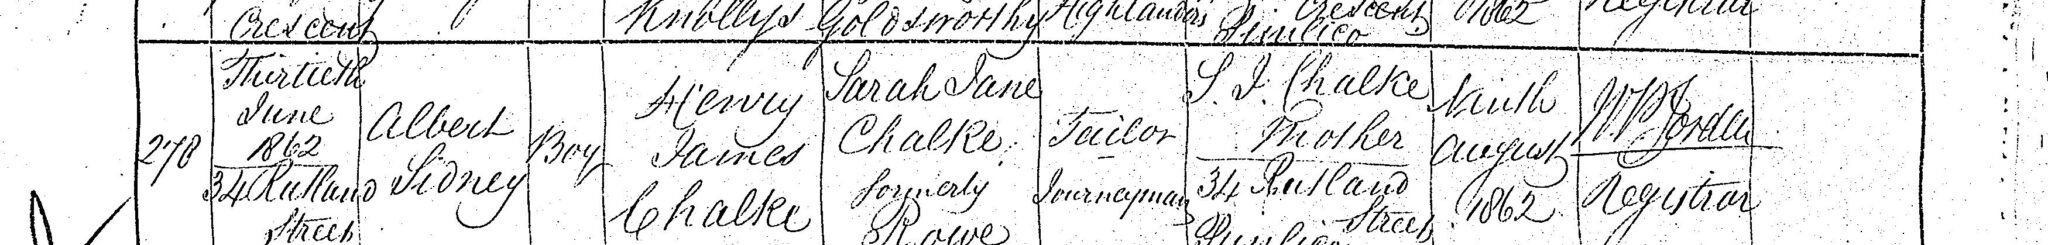 Crescent Knollys Goldsworthy Highlanders Crescent Pimlico 1862 Registrar
278
Thirtieth
June
1862
34 Rutland
Street
Albert
Sidney
Boy
Henry
James
Chalke
Sarah Jane
Chalke
formerly
Rowe
Tailor
Journeyman
S. J. Chalke
Mother
34 Rutland
Street
Pimlico
Ninth
August
1862
Registrar